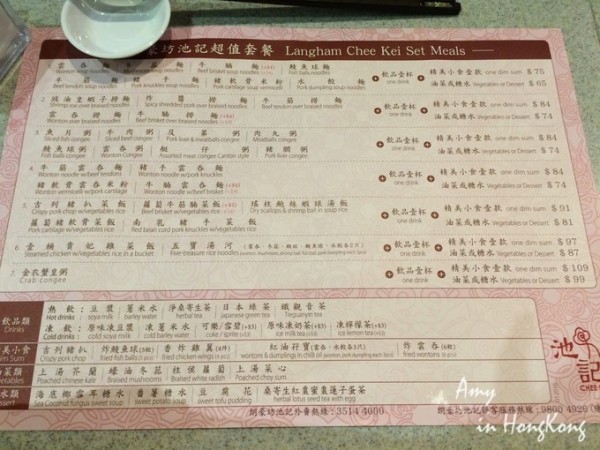 豪坊池記超值套餐 Langham Chee Kei Set Meals
雲吞湯麵 牛筋湯麵 牛腩麵(+$4) 鯪魚球麵
Wonton soup noodles Beef brisket soup noodles Fish balls noodles
豬手麵 豬軟骨米粉 水餃麵
Pork knuckles noodles Pork cartilage soup vermicelli Pork dumpling soup noodles
飲品壹杯 one drink
精美小食壹款 one dim sum $ 75
油菜或糖水 Vegetables or Dessert $ 65
2. 豉油皇蝦子撈麵 炸醬撈麵 牛筋撈麵
Shrimp roe over braised noodles Spicy shredded pork over braised noodles
雲吞撈麵
Wonton over braised noodles Beef brisket over braised noodles
飲品壹杯 one drink
精美小食壹款 one dim sum $ 84
油菜或糖水 Vegetables or Dessert $ 74
3. 魚片粥 牛肉粥 及第粥 肉丸粥
Sliced fish congee Sliced beef congee Pork liver & meatballs congee Meatballs congee
鯪魚球粥 雲吞粥 艇仔粥 豬膶粥
Fish balls congee Wonton congee Assorted meat congee Canton style Pork liver congee
飲品壹杯 one drink
精美小食壹款 one dim sum $ 84
油菜或糖水 Vegetables or Dessert $ 74
4. 牛筋雲吞麵 豬手雲吞麵
Wonton noodle w/beef brisket Wonton noodle w/pork knuckles
豬軟骨雲吞米粉 牛腩雲吞麵(+$4)
Wonton vermicelli w/pork cartilage
飲品壹杯 one drink
精美小食壹款 one dim sum $ 84
油菜或糖水 Vegetables or Dessert $ 74
5. 吉列豬扒菜飯 蘿蔔牛筋腩菜飯(+$5) 瑤柱鮑絲蝦球湯飯
Crispy pork chop w/vegetables rice Beef brisket w/vegetables rice Dry scallops & shrimp ball in soup rice
蘿蔔豬軟骨菜飯 南乳豬手菜飯
Pork cartilage w/vegetables rice Pork knuckles w/vegetables rice
飲品壹杯 one drink
精美小食壹款 one dim sum $ 91
油菜或糖水 Vegetables or Dessert $ 81
6. 壹桶貴妃雞菜飯 五寶湯河
Steamed chicken w/vegetables rice in a bucket Five-treasure rice noodles
飲品壹杯 one drink
精美小食壹款 one dim sum $ 97
油菜或糖水 Vegetables or Dessert $ 87
7. 金衣蟹皇粥
Crab congee
飲品壹杯 one drink
精美小食壹款 one dim sum $ 109
油菜或糖水 Vegetables or Dessert $ 99
飲品類 Drinks
熱飲: 豆漿 薏米水 淨桑寄生茶 日本綠茶 鐵觀音茶
Hot drinks soya milk barley water herbal tea Japanese green tea Tieguanyin tea
凍飲: 原味凍豆漿 凍薏米水 可樂/雪碧(+$3) 原味凍奶茶(+$3) 凍檸檬茶(+$3)
Cold drinks cold soya milk cold barley water coke / sprite ice milk tea ice lemon tea
美小食
吉列豬扒 炸鯪魚球(3粒) 香炸雞翼(4隻) 紅油孖寶(雲吞·水餃各3片) 炸雲吞(6粒)
Crispy pork chop Fried fish balls Fried chicken wings wontons & dumplings in chilli oil fried wontons
油菜類
上湯芥蘭 蠔油冬菇 柱侯蘿蔔 上湯菜心
Poached chinese kale Braised mushrooms Braised white radish Poached choy sum
糖水類
海底椰雪耳糖水 番薯糖水 豆腐花 桑寄生紅棗蜜棗蓮子蛋茶
Sea Coconut fungus sweet soup sweet potato soup sweet tofu pudding herbal lotus seed tea with egg
朗豪坊池記外賣熱線: 3514 4000
朗豪坊池記顧客服務熱線: 9800 4920
池記
CHEE KEI
Amy
in HongKong